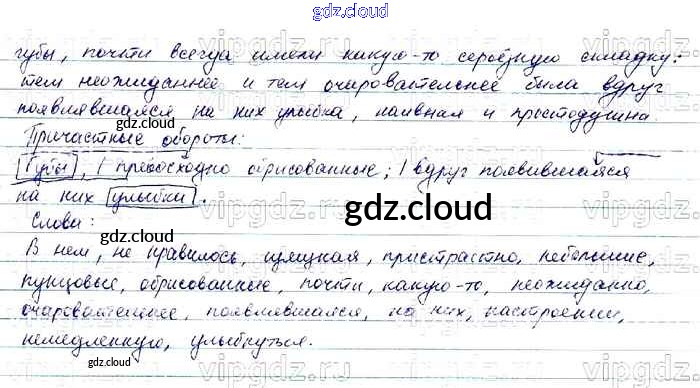 gdz.cloud
губы, почти всегда имели какую-то серьёзную складку:
тем неожиданнее и тем очаровательнее была вдруг
появлявшаяся на них улыбка, наивная и простодушна
gdz.cloud
Причастные обороты:
Губы, превосходно обрисованные; вдруг появившаяся
на них улыбка.
gdz.cloud
Слова:
В нем, не нравилось, изящная, пристрастно, небольшие,
пунцовые, обрисованные, почти, какую-то, неожиданно,
очаровательнее, появлявшаяся, на них, настроении,
немедленную, улыбнуться.
gdz.cloud
gdz.cloud
vipgdz.ru